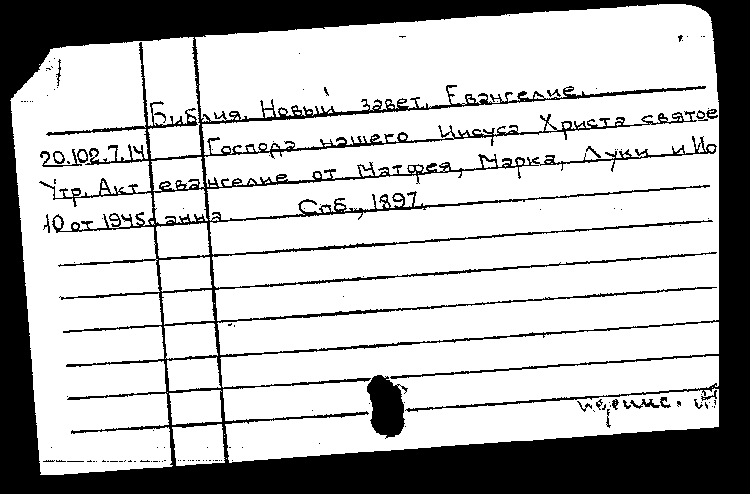 Библия. Новый завет. Евангелие.
20.102.7.14 Господа нашего Иисуса Христа святое
Утр. Акт евангелие от Матфея, Марка, Луки и Ио
10 от 1945г анна. Спб., 1897.